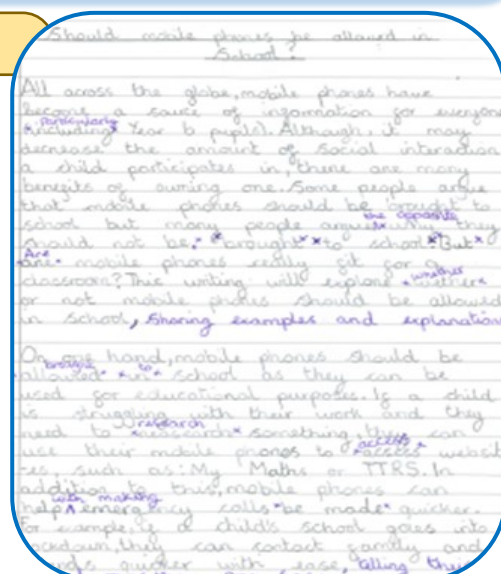 Should mobile phones be allowed in
School?
All across the globe, mobile phones have
become a source of information for everyone
particularly
*including* Year 6 pupils. Although, it may
decrease the amount of social interaction
a child participates in, there are many
benefits of owning one. Some people argue
that mobile phones should be brought to
school but many people argue the opposite they
should not be brought to school But
Are
are mobile phones really fit for a
classroom? This writing will explore whether
or not mobile phones should be allowed
in school, sharing examples and explanation
On one hand, mobile phones should be
brought to
allowed in school as they can be
used for educational purposes. If a child
is struggling with their work and they
research
need to something, they can
access
use their mobile phones to websit
-es, such as: My Maths or TTRS. In
addition to this, mobile phones can
with making
help emergency calls *be made* quicker.
For example, if a child's school goes into
lockdown, they can contact family and
quicker with ease,